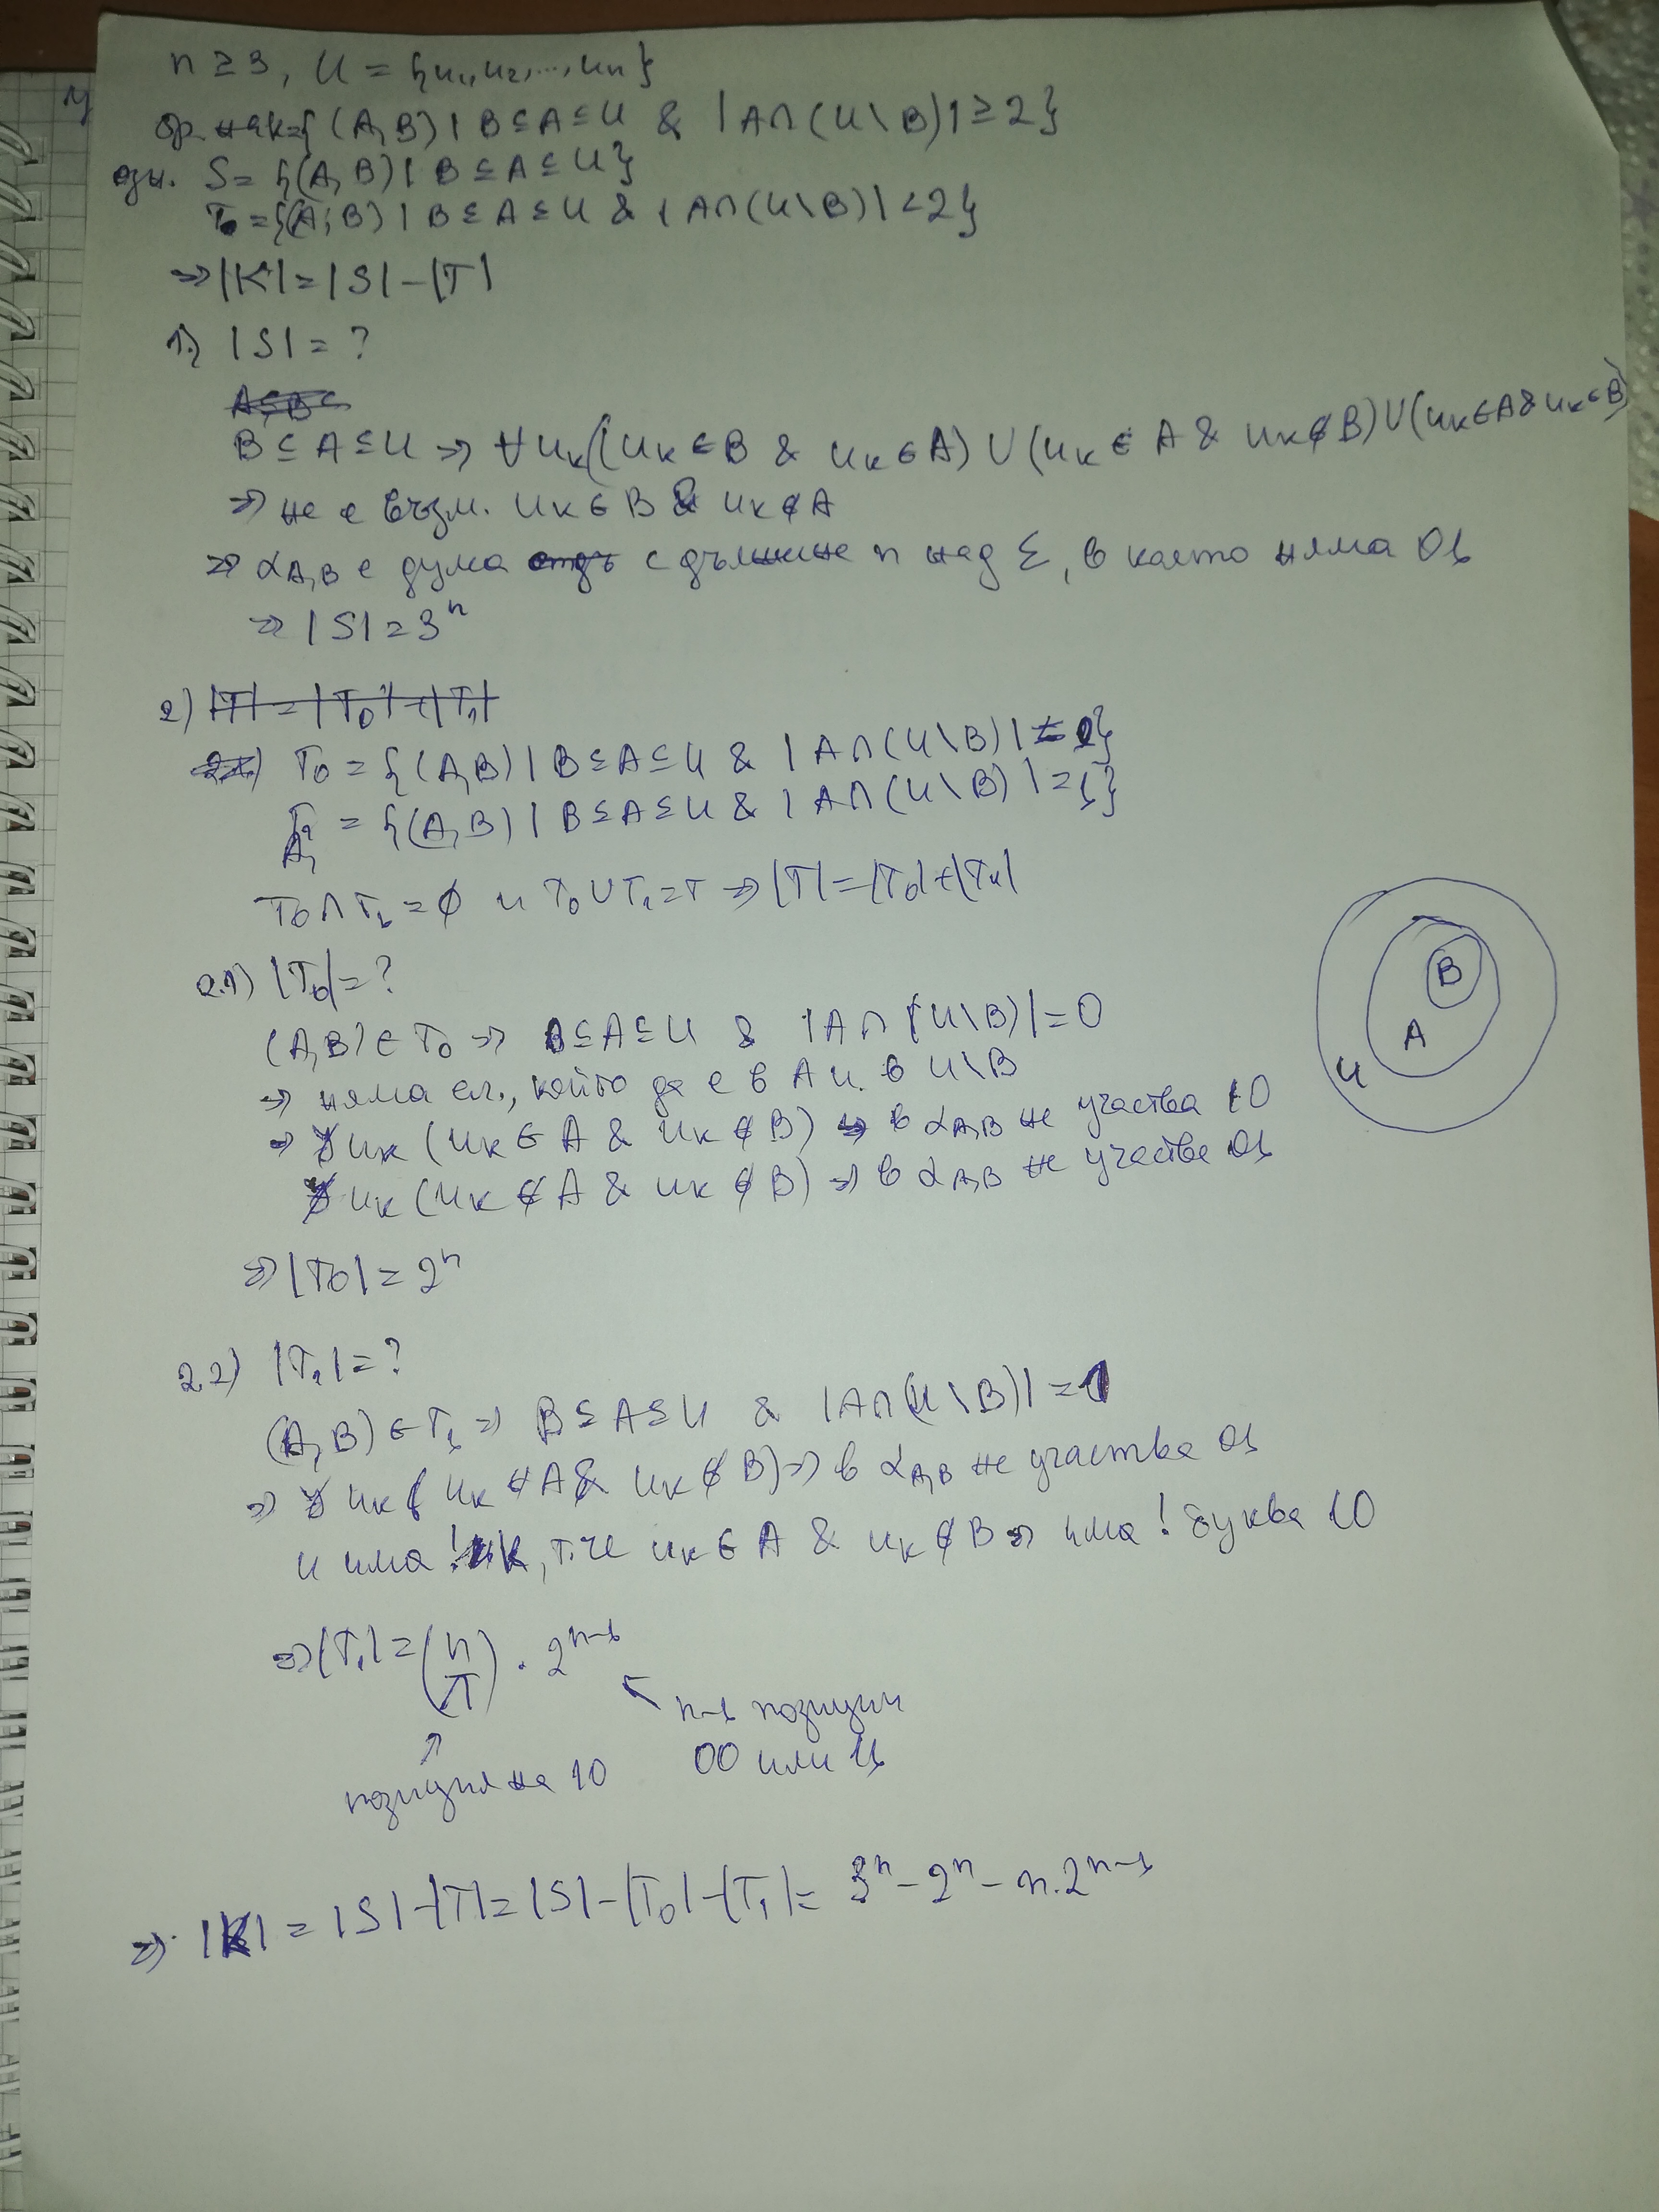 n ≥ 3, U = {u₁, u₂, ..., uₙ}
1)
K = {(A, B) | B ⊆ A ⊆ U & |A∩(U\B)| ≥ 2}
озн. S = {(A, B) | B ⊆ A ⊆ U}
T = {(A, B) | B ⊆ A ⊆ U & |A∩(U\B)| < 2}
⇒ |K| = |S| - |T|
1) |S| = ?
B ⊆ A ⊆ U ⇒ ∀uₖ((uₖ ∈ B & uₖ ∈ A) ∪ (uₖ ∈ A & uₖ ∉ B) ∪ (uₖ ∈ A & uₖ ∈ B)
⇒ не е възм. uₖ ∈ B & uₖ ∉ A
⇒ α_{A,B} е дума с дължине n над Σ, в което няма 01
⇒ |S| = 3ⁿ
2) |T| = |T₀| + |T₁|
T₀ = {(A, B) | B ⊆ A ⊆ U & |A∩(U\B)| = 0}
T₁ = {(A, B) | B ⊆ A ⊆ U & |A∩(U\B)| = 1}
T₀ ∩ T₁ = ∅ и T₀ ∪ T₁ = T ⇒ |T| = |T₀| + |T₁|
2.1) |T₀| = ?
(A, B) ∈ T₀ ⇒ B ⊆ A ⊆ U & |A∩(U\B)| = 0
⇒ няма ел., който да е в A и в U\B
⇒ ∄ uₖ (uₖ ∈ A & uₖ ∉ B) ⇒ в α_{A,B} не участва 10
∄ uₖ (uₖ ∉ A & uₖ ∉ B) ⇒ в α_{A,B} не участва 01
⇒ |T₀| = 2ⁿ
B
A
U
2.2) |T₁| = ?
(A, B) ∈ T₁ ⇒ B ⊆ A ⊆ U & |A∩(U\B)| = 1
⇒ ∄ uₖ (uₖ ∉ A & uₖ ∉ B) ⇒ в α_{A,B} не участва 01
и има ! uₖ, т.че uₖ ∈ A & uₖ ∉ B ⇒ има ! буква 10
⇒ |T₁| = (n 1) . 2ⁿ⁻¹
n-1 позиции
00 или 11
позиция на 10
⇒ |K| = |S| - |T| = |S| - |T₀| - |T₁| = 3ⁿ - 2ⁿ - n.2ⁿ⁻¹